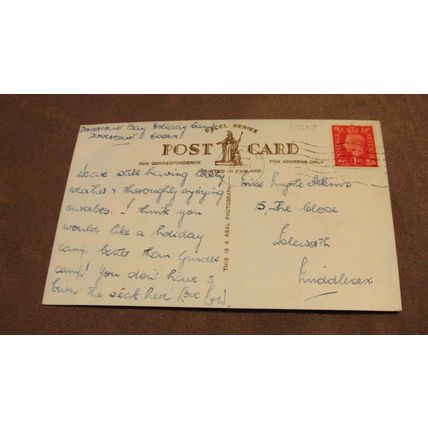 Dovercourt Bay Holiday Camp
Dovercourt Essex
EXCEL SERIES
POST CARD
FOR CORRESPONDENCE
PRINTED IN ENGLAND
FOR ADDRESS ONLY
POSTAGE
REVENUE
We are still having lovely
weather & thoroughly enjoying
ourselves. I think you
would like a holiday
camp better than Guides
camp! You don't have to
burn the steak here! Love
THIS IS A REAL PHOTOGRAPH
Miss Adams
15, The Close
Isleworth
Middlesex.